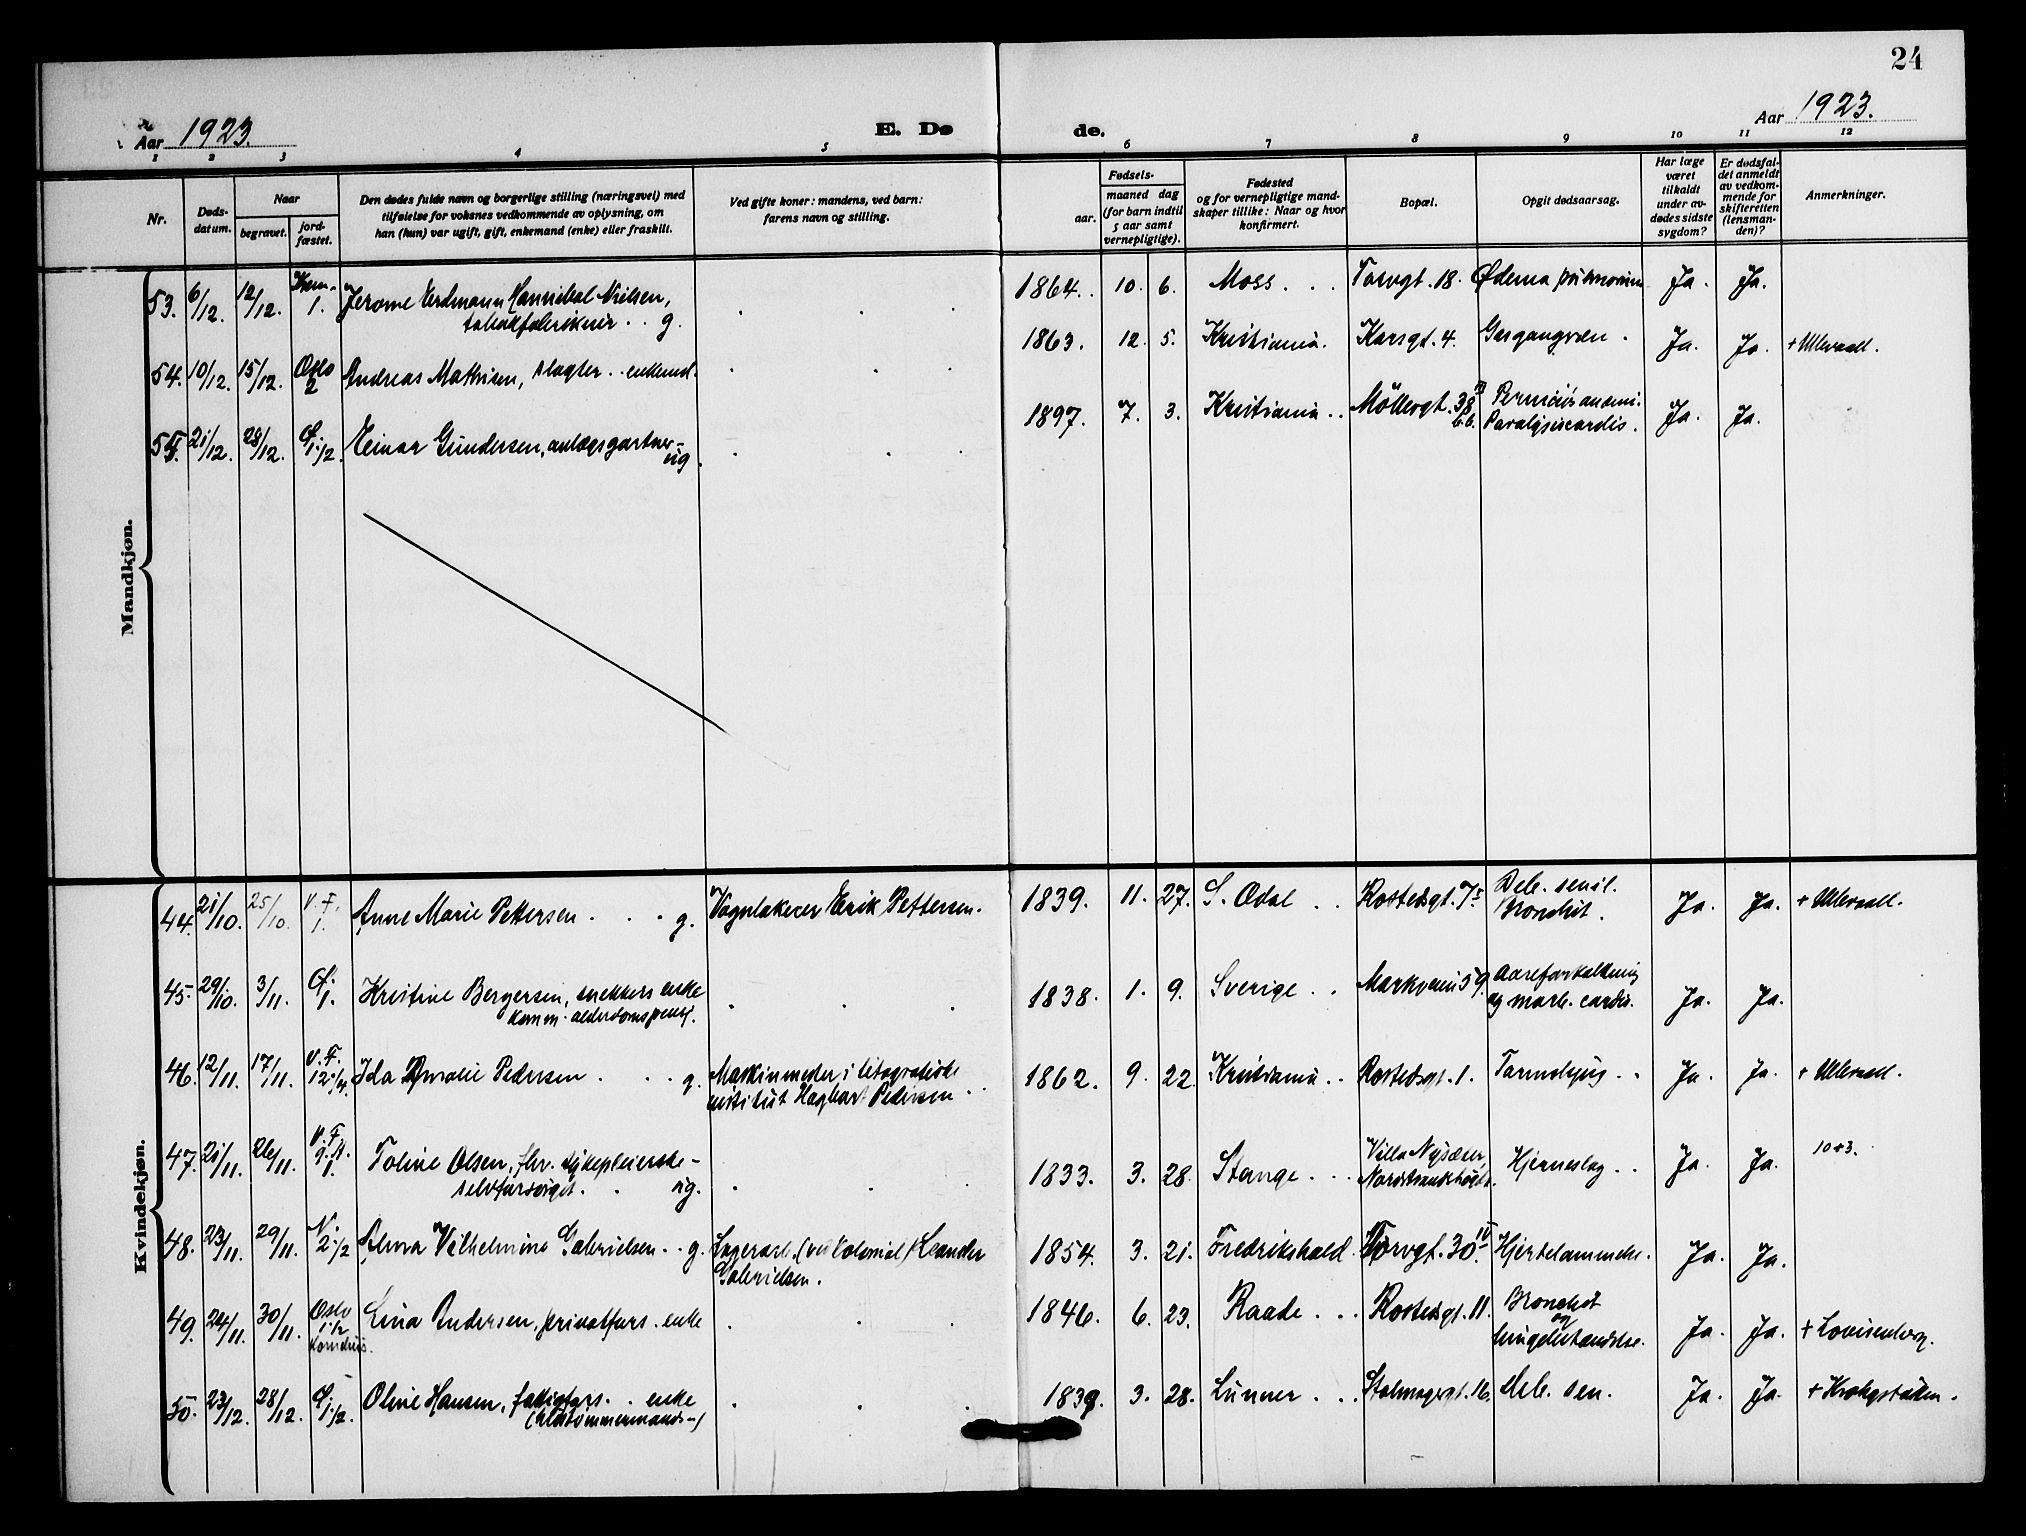 24
Aar 1923.
E. Dø
de.
Aar 1923.
1 2 3 4 5 6 7 8 9 10 11 12
Nr.
Døds-
datum.
Naar
begravet.
jord-
fæstet.
Den dødes fulde navn og borgerlige stilling (næringsvei) med
tilføielse for voksnes vedkommende av oplysning, om
han (hun) var ugift, gift, enkemand (enke) eller fraskilt.
Ved gifte koner: mandens, ved barn:
farens navn og stilling.
Fødsels-
aar.
maaned dag
(for barn indtil
5 aar samt
vernepligtige).
Fødested
og for vernepligtige mand-
skaper tillike: Naar og hvor
konfirmert.
Bopæl.
Opgit dødsaarsag.
Har læge
været
tilkaldt
under av-
dødes sidste
sygdom?
Er dødsfal-
det anmeldt
av vedkom-
mende for
skifteretten
(lensman-
den)?
Anmerkninger.
Mandkjøn.
53. 6/12. 12/12. Krem. 1. Jerome Erdmann Hannibal Nielsen,
tobakfabrikeier . . g.
1864. 10. 6. Moss . . . Torvgt. 18. Ødema pulmonum Ja. Ja.
54. 10/12. 15/12. Oslo 2 Andreas Mathisen, slagter . . enkemd.
1863. 12. 5. Kristiania. Korsgt. 4. Gasgangræn . Ja. Ja. + Ullevaall.
55. 21/12. 28/12. 1 1/2. Einar Gundersen, anlægsgartner -
ug.
1897. 7. 3. Kristiania . . Møllergt. 38 b.b. Perniciøs anæmi.
Paralysis cordis. Ja. Ja.
Kvindekjøn.
44. 21/10. 25/10. V. F. 1. Anne Marie Pettersen . . . g. Vognlakerer Erik Pettersen.
1839. 11. 27. S. Odal . . Rostedsgt. 7 Deb. senil.
Bronchit. Ja. Ja. + Ullevaall.
45. 29/10. 3/11. 1. Kristine Bergersen, snekkers enke
komm. alderdomspensj.
1838. 1. 9. Sverige . . Markveien 59. Aareforkalkning
og morb. cordis. Ja. Ja.
46. 12/11. 17/11. V. F. 12 1/4. Ida Amalie Pedersen . . . g. Maskinmester i litografiske
institut Hagbart Pedersen . .
1862. 9. 22. Kristiania . . Rostedsgt. 1. Tarmslyng . . Ja. Ja. + Ullevaall.
47. 21/11. 26/11. V. F. g. K. 1. Toline Olsen, fhv. sykepleierske -
selvforsørget. . ug.
1833. 3. 28. Stange . . . Villa Nysæter
Nordstrandshøgda. Hjerneslag . . Ja. Ja. 10+3.
48. 23/11. 29/11. N. 2 1/2 Alma Vilhelmine Gabrielsen . . g. Lagerarb. (ved kolonial) Leander
Gabrielsen.
1854. 3. 21. Fredrikshald. Torvgt. 30 IV. Hjertelammelse. Ja. Ja.
49. 24/11. 30/11. Oslo 1 1/2 Lina Andersen, privatfors. enke
1846. 6. 23. Raade . . . Rostedsgt. 11. Bronchit
og
lungebetændelse. Ja. Ja. + Lovisenberg.
50. 23/12. 28/12. 1 1/2. Oline Hansen, fattigfors. . enke
1839. 3. 28. Lunner . . . Stolmagergt. 16. Deb. sen. Ja. Ja. + Krohgstøtten.